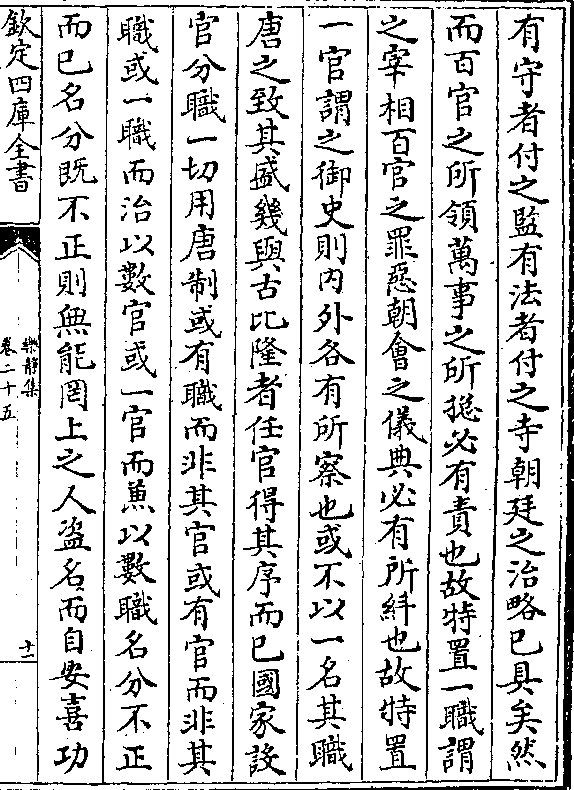 有守者付之監有法者付之寺朝廷之治略已具矣然
而百官之所領萬事之所揔必有責也故特置一職謂
之宰相百官之罪惡朝會之儀典必有所糾也故特置
一官謂之御史則内外各有所察也或不以一名其職
唐之致其盛幾與古比隆者任官得其序而已國家設
官分職一切用唐制或有職而非其官或有官而非其
職或一職而治以數官或一官而兼以數職名分不正
而已名分既不正則無能罔上之人盗名而自安喜功
欽定四庫全書
樂静集
卷二十五
十一